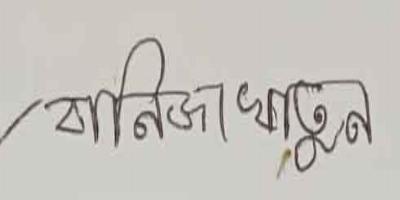 বানিজা খাতুন